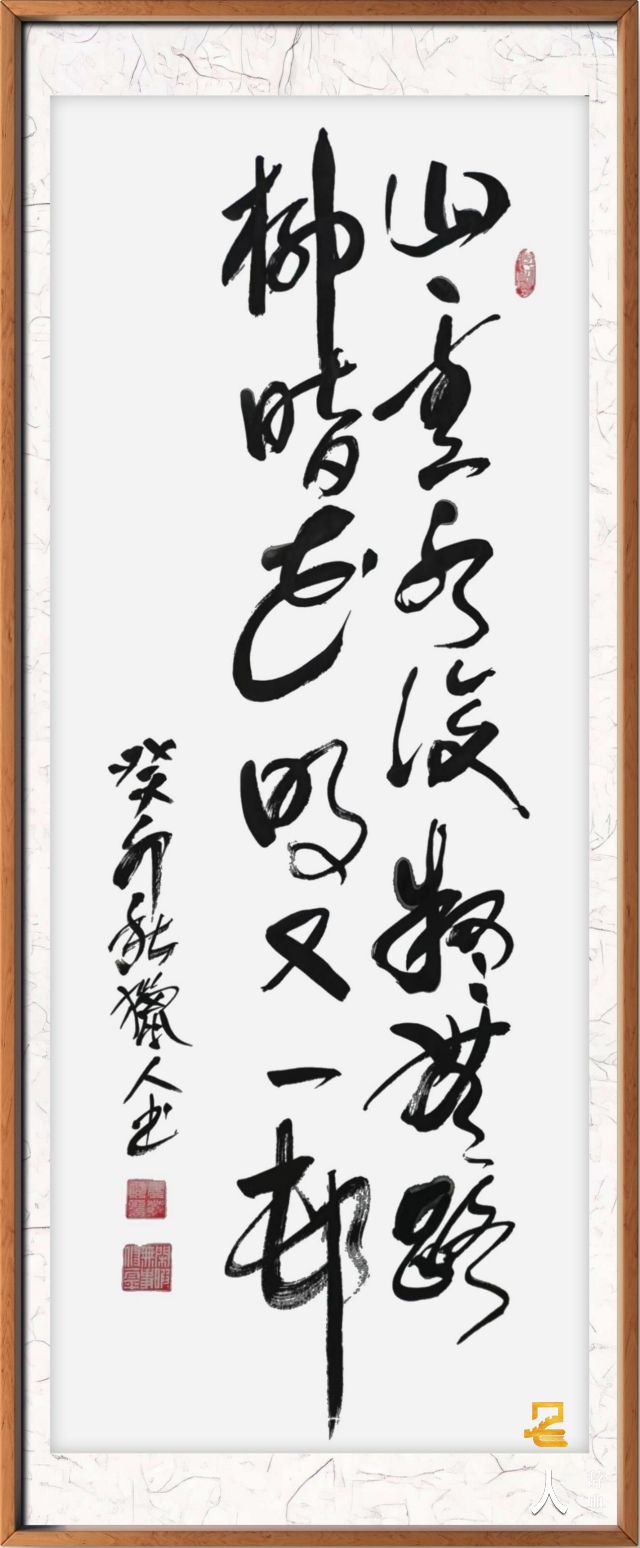 山重水復疑無路
柳暗花明又一邨
癸卯秋獵人书
人